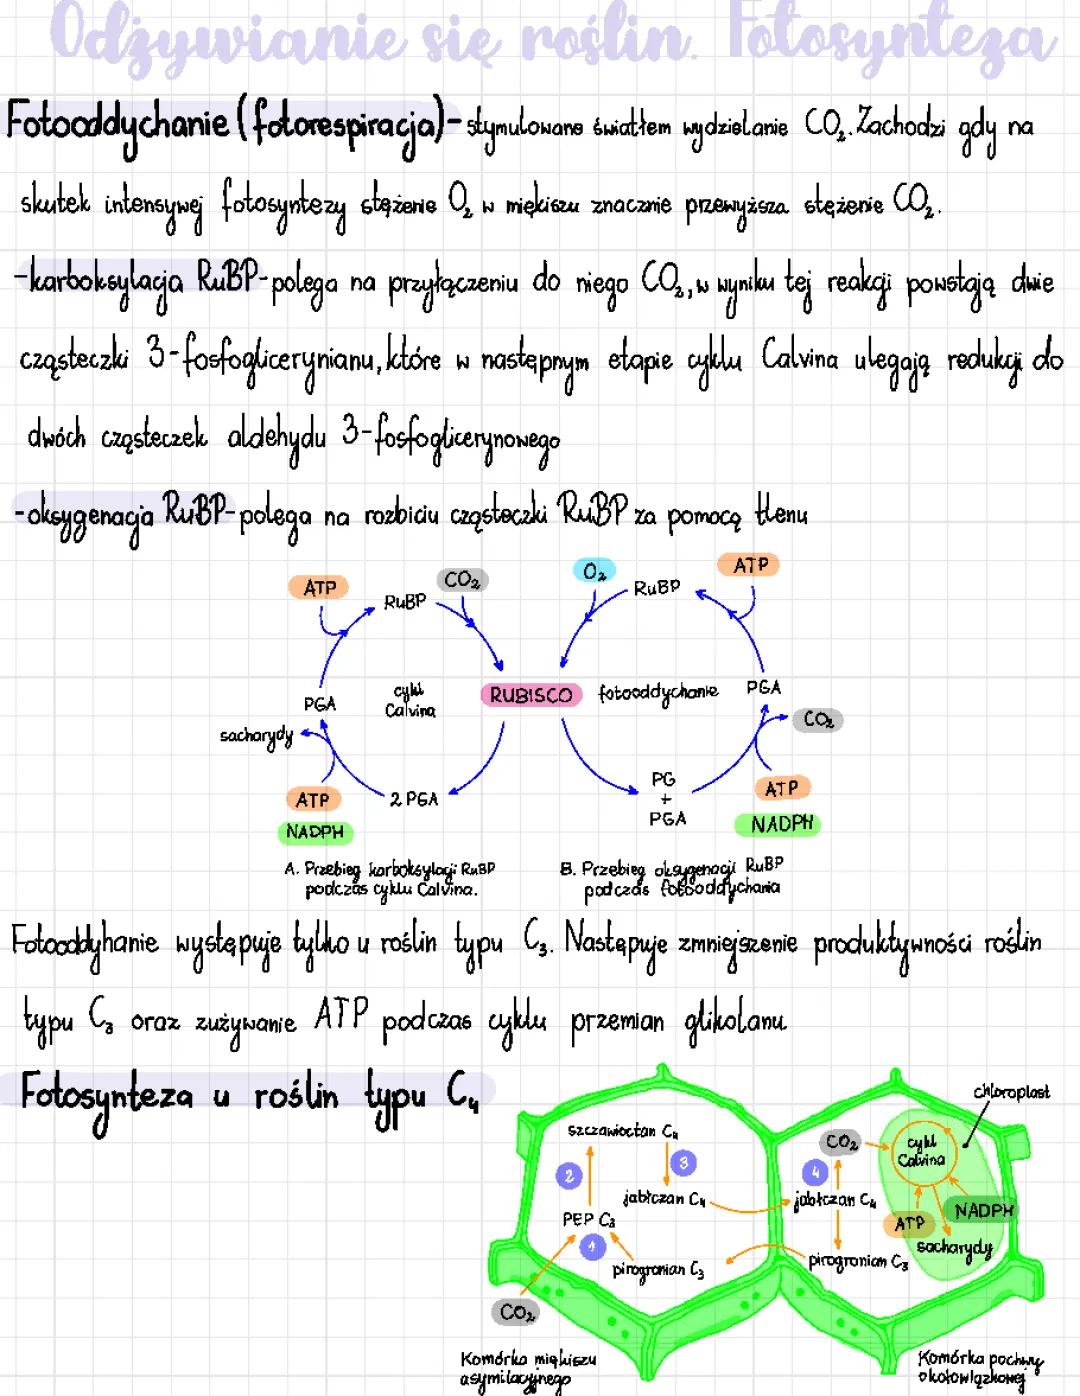 Odżywianie się roślin. Fotosynteza
Fotooddychanie (fotorespiracja)- stymulowane światłem wydzielanie CO₂. Zachodzi gdy na
skutek intensywej fotosyntezy stężenie O₂ w miękiszu znacznie przewyższa stężenie CO₂.
-karboksylacja RuBP- polega na przyłączeniu do niego CO₂, w wyniku tej reakcji powstają dwie
cząsteczki 3-fosfoglicerynianu, które w następnym etapie cyklu Calvina ulegają redukcji do
dwóch cząsteczek aldehydu 3-fosfoglicerynowego
-oksygenacja RuBP- polega na rozbiciu cząsteczki RuBP za pomocą tlenu
ATP
RuBP
CO₂
PGA
cykl
Calvina
sacharydy
ATP
NADPH
2 PGA
RUBISCO
O₂
RuBP
ATP
fotooddychanie
PGA
CO₂
PG
+
PGA
ATP
NADPH
A. Przebieg karboksylacji RuBP
podczas cyklu Calvina.
B. Przebieg oksygenacji RuBP
podczas fotooddychania
Fotooddyhanie występuje tylko u roślin typu C₃. Następuje zmniejszenie produktywności roślin
typu C₃ oraz zużywanie ATP podczas cyklu przemian glikolanu
Fotosynteza u roślin typu C₄
szczawioctan C₄
2
3
jabłczan C₄
PEP C₃
1
pirogronian C₃
CO₂
Komórka miękiszu
asymilacyjnego
chloroplast
CO₂
cykl
Calvina
4
jabłczan C₄
ATP
NADPH
sacharydy
pirogronian C₃
Komórka pochwy
okołowiązkowej